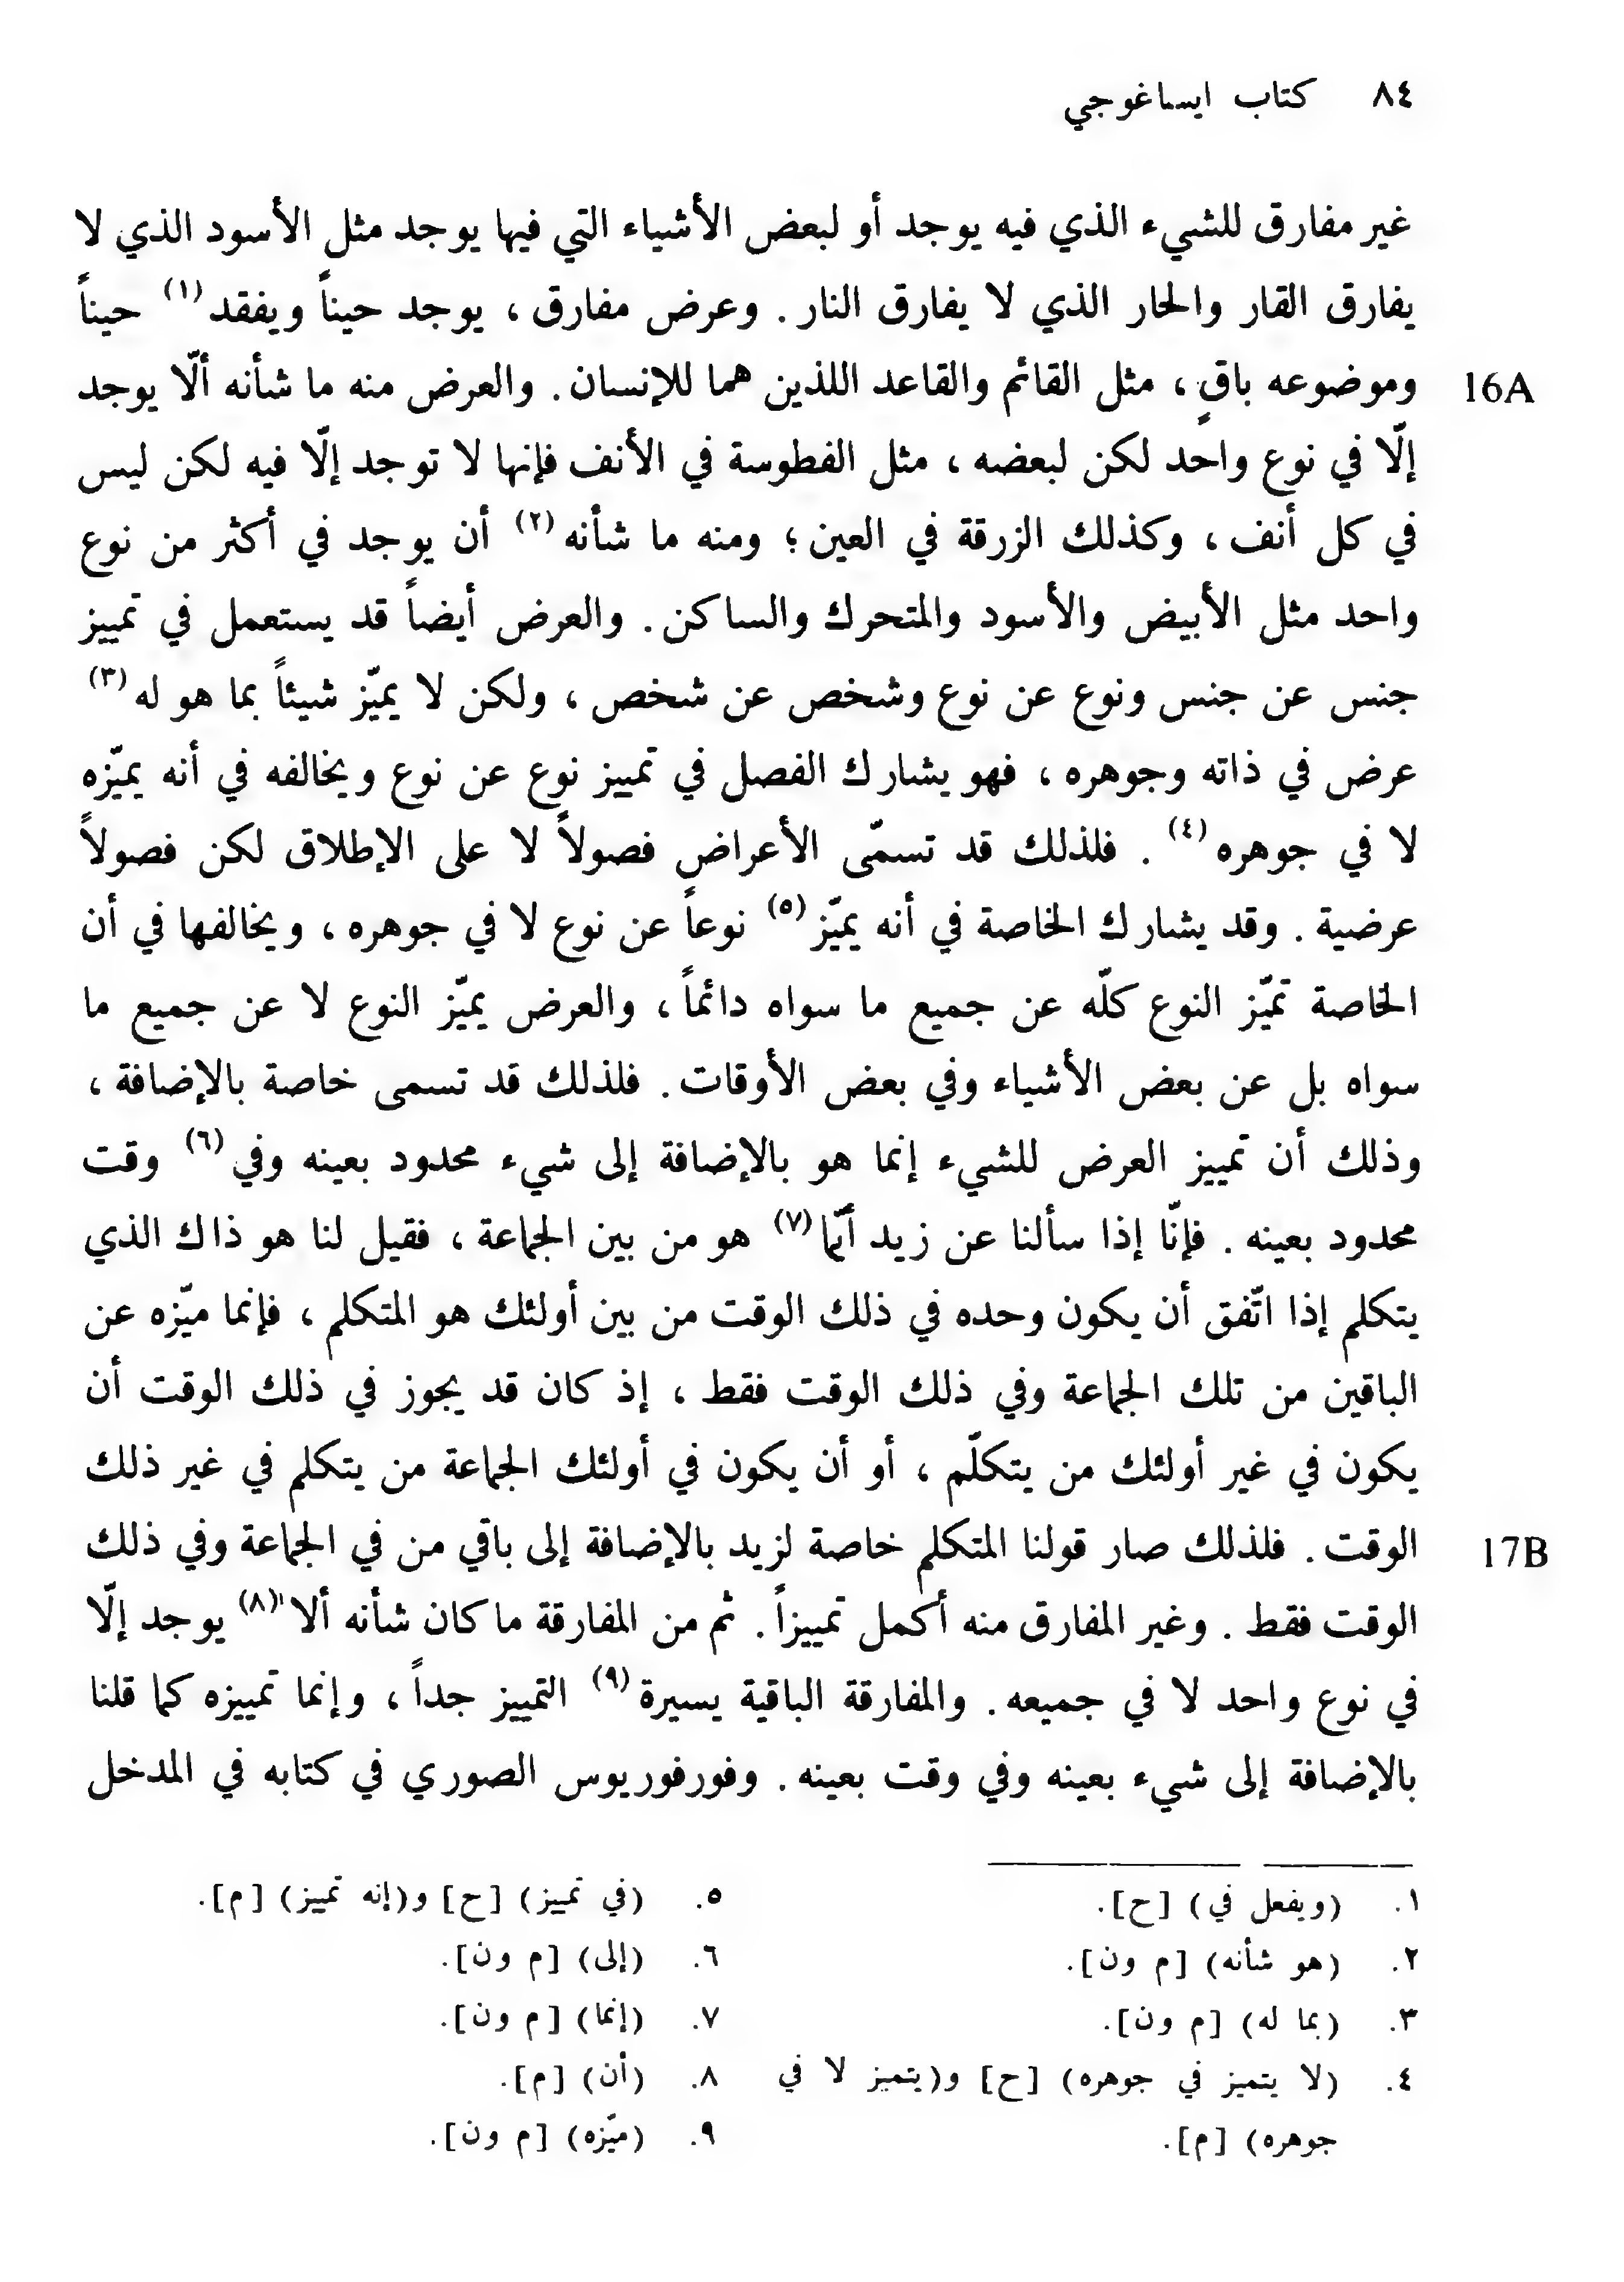 ٨٤ كتاب ايساغوجي
غير مفارق للشيء الذي فيه يوجد أو لبعض الأشياء التي فيها يوجد مثل الأسود الذي لا
يفارق القار والحار الذي لا يفارق النار . وعرض مفارق ، يوجد حيناً ويفقد(١) حيناً
16A وموضوعه باقٍ ، مثل القائم والقاعد اللذين هما للإنسان . والعرض منه ما شأنه ألّا يوجد
إلّا في نوع واحد لكن لبعضه ، مثل الفطوسة في الأنف فإنها لا توجد إلّا فيه لكن ليس
في كل أنف ، وكذلك الزرقة في العين ؛ ومنه ما شأنه(٢) أن يوجد في أكثر من نوع
واحد مثل الأبيض والأسود والمتحرك والساكن . والعرض أيضاً قد يستعمل في تمييز
جنس عن جنس ونوع عن نوع وشخص عن شخص ، ولكن لا يميّز شيئاً بما هو له(٣)
عرض في ذاته وجوهره ، فهو يشارك الفصل في تمييز نوع عن نوع ويخالفه في أنه يميّزه
لا في جوهره(٤) . فلذلك قد تسمّى الأعراض فصولاً لا على الإطلاق لكن فصولاً
عرضية . وقد يشارك الخاصة في أنه يميّز(٥) نوعاً عن نوع لا في جوهره ، ويخالفها في أن
الخاصة تميّز النوع كلّه عن جميع ما سواه دائماً ، والعرض يميّز النوع لا عن جميع ما
سواه بل عن بعض الأشياء وفي بعض الأوقات . فلذلك قد تسمى خاصة بالإضافة ،
وذلك أن تمييز العرض للشيء إنما هو بالإضافة إلى شيء محدود بعينه وفي(٦) وقت
محدود بعينه . فإنّا إذا سألنا عن زيد أيّما(٧) هو من بين الجماعة ، فقيل لنا هو ذاك الذي
يتكلم إذا اتّفق أن يكون وحده في ذلك الوقت من بين أولئك هو المتكلم ، فإنما ميّزه عن
الباقين من تلك الجماعة وفي ذلك الوقت فقط ، إذ كان قد يجوز في ذلك الوقت أن
يكون في غير أولئك من يتكلّم ، أو أن يكون في أولئك الجماعة من يتكلم في غير ذلك
17B الوقت . فلذلك صار قولنا المتكلم خاصة لزيد بالإضافة إلى باقي من في الجماعة وفي ذلك
الوقت فقط . وغير المفارق منه أكمل تمييزاً . ثم من المفارقة ما كان شأنه ألا(٨) يوجد إلّا
في نوع واحد لا في جميعه . والمفارقة الباقية يسيرة(٩) التمييز جداً ، وإنما تمييزه كما قلنا
بالإضافة إلى شيء بعينه وفي وقت بعينه . وفورفوريوس الصوري في كتابه في المدخل
١. (ويفعل في) [ح].
٢. (هو شأنه) [م ون].
٣. (بما له) [م ون].
٤. (لا يتميز في جوهره) [ح] و(يتميز لا في
جوهره) [م].
٥. (في تمييز) [ح] و(إنه تمييز) [م].
٦. (إلى) [م ون].
٧. (إنما) [م ون].
٨. (أن) [م].
٩. (ميّزه) [م ون].